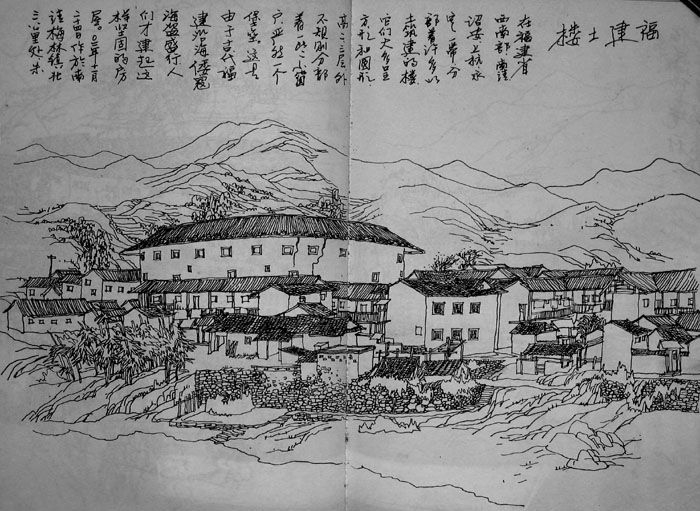 福建土楼
在福建省
西南部南靖
诏安上杭永
定一带分
部着许多以
土筑建的楼
它们大多呈
方形和圆形
高二三层外
不规则分部
着一些小窗
户严然一个
堡垒这是
由于古代福
建沿海倭寇
海盗盛行人
们才建起这
样坚固的房
屋。年十月
作於南
靖梅林镇北
三公里处